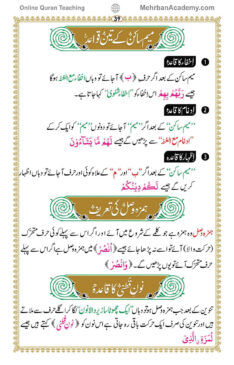 Online Quran Teaching MehrbanAcademy.com
39
میم ساکن کے تین قواعد
1 اخفاء کا قاعدہ
میم ساکن کے بعد اگر حرف ( ب ) آجائے تو وہاں اخفاء مع الغنہ ہوگا
جیسے رَبَّهُمْ بِهِمْ اس اخفاء کو "اخفاءِ شفوی" کہا جاتا ہے۔
2 ادغام کا قاعدہ
"میم ساکن" کے بعد اگر "میم" آجائے تو دونوں "میم" کو ایک کر کے
"ادغام مع الغنہ" سے پڑھیں گے جیسے لَهُمْ مَّا يَشَآءُوْنَ
3 اظہار کا قاعدہ
"میم ساکن" کے بعد اگر "ب" اور "م" کے علاوہ کوئی اور حرف آجائے تو وہاں اظہار
کریں گے جیسے لَكُمْ دِيْنُكُمْ
ہمزہ وصل کی تعریف
ہمزہ وصل وہ ہمزہ ہے جو کلمے کے شروع میں آئے اور اگر اس سے پہلے کوئی حرف متحرک
(حرکت والا) آئے تو اسے نہ پڑھا جائے جیسے ( اُنْصُرْ ) میں ہمزہ وصل ہے اگر اس سے پہلے
حرف متحرک آئے تو یوں پڑھیں گے۔ ( وَانْصُرْ )
نون قطنی کا قاعدہ
تنوین کے بعد جب ہمزہ وصل ہو تو وہاں ایک چھوٹا سا زیر والا نون لگا کر اگلے حرف سے ملاتے
ہیں اور تنوین کی صرف ایک حرکت باقی رہ جاتی ہے اس نون کو ( نون قطنی ) کہتے ہیں جیسے
لُمَزَةِ ۨالَّذِيْ